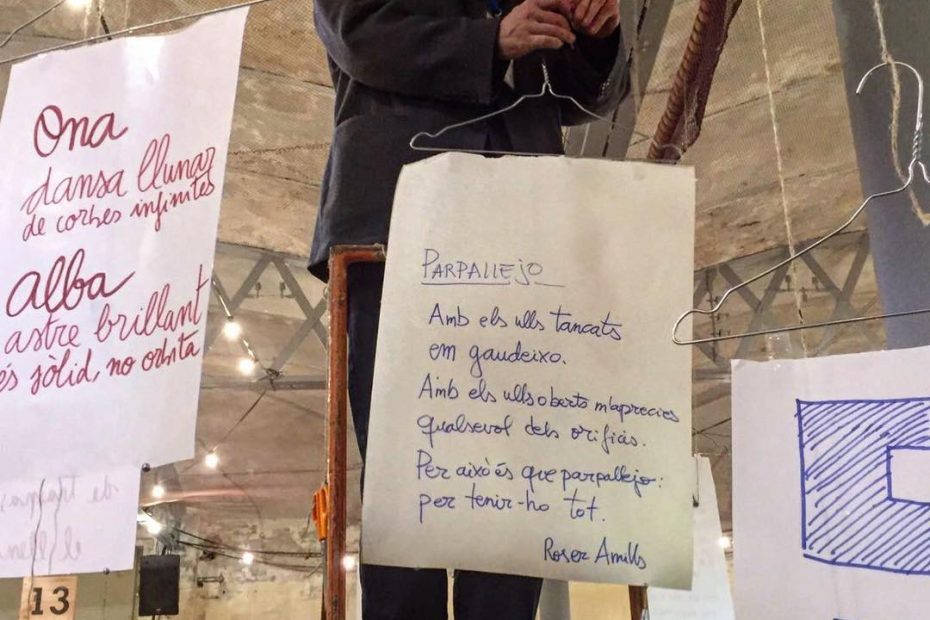 Ona
dansa llunar
de corbes infinites
alba
astre brillant
és sòlid, no orbita
13
PARPALLEJO
Amb els ulls tancats
em gaudeixo.
Amb els ulls oberts m'aprecies
qualsevol dels orificis.
Per això és que parpallejo:
per tenir-ho tot.
Roser Amills